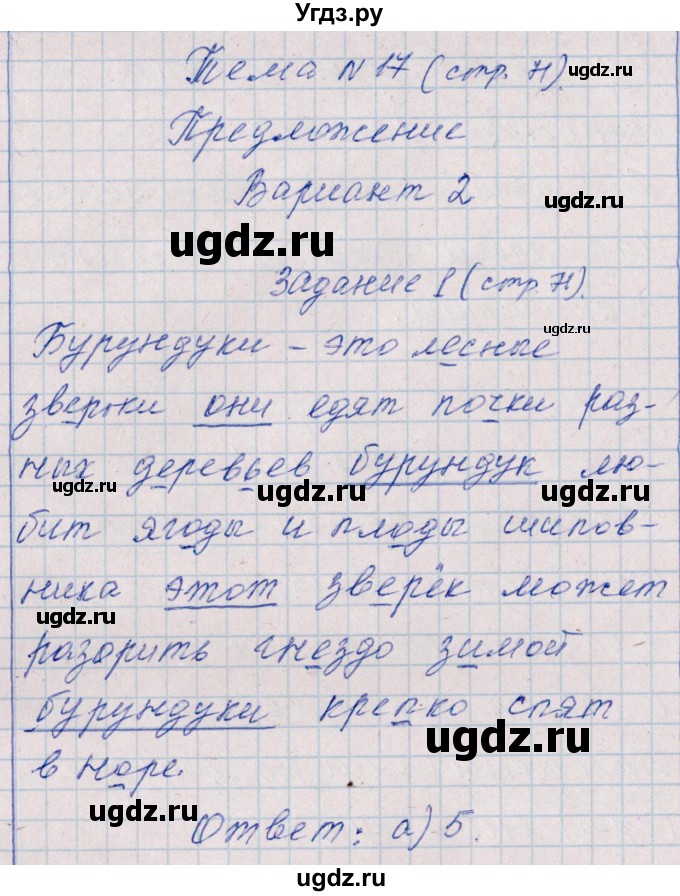 Угдз.ру
Тема N 17 (стр. 71).
ugdz.ru
Предложение
Вариант 2
ugdz.ru
ugdz.ru
Задание 1 (стр. 71).
ugdz.ru
Бурундуки – это лесные
зверьки они едят почки раз-
ugdz.ru
ных деревьев бурундук лю-
ugdz.ru
ugdz.ru
бит ягоды и плоды шипов-
ника этот зверёк может
ugdz.ru
разорить гнездо зимой
бурундуки крепко спят
ugdz.ru
в норе.
ugdz.ru
Ответ: а) 5.
Угдз.ру